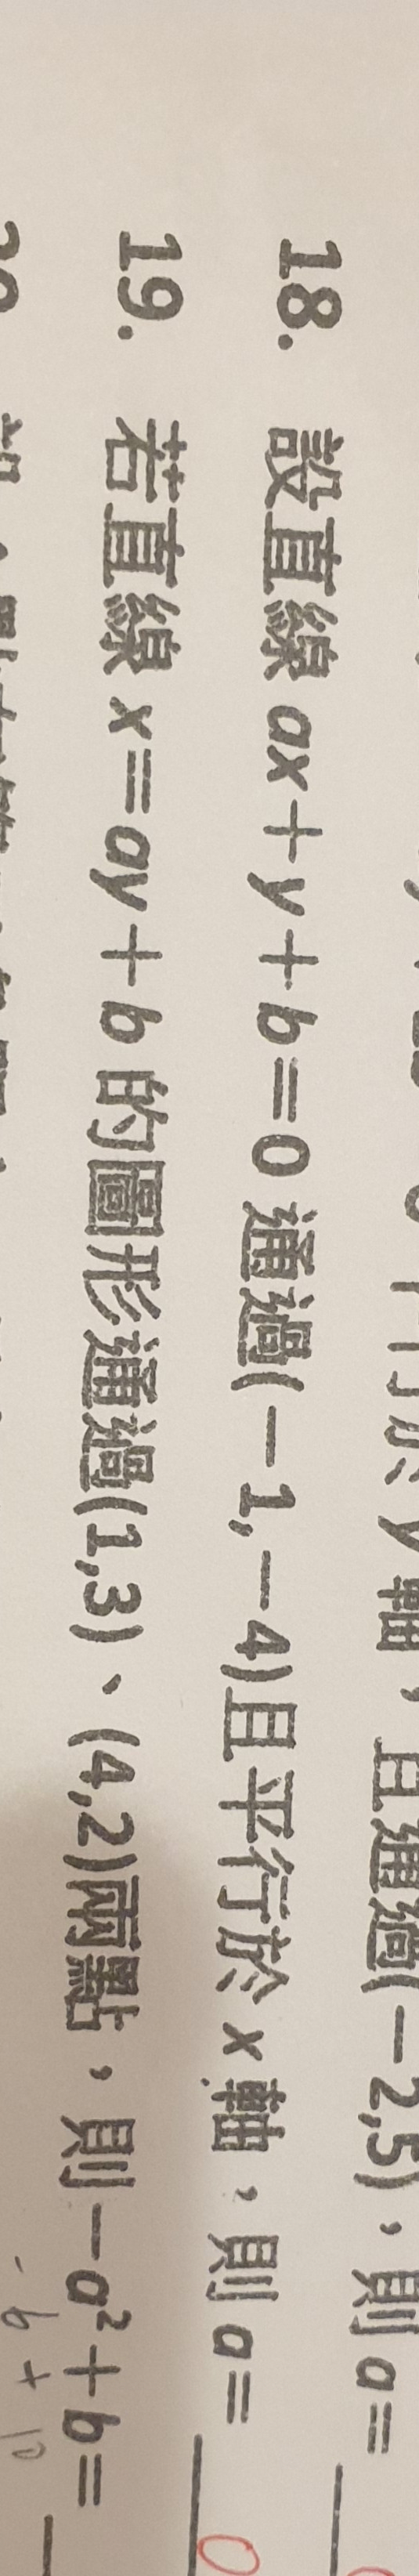 軸，且通過(−2,5)，則 a=
18. 設直線 ax+y+b=0 通過(−1,−4)且平行於 x 軸，則 a= 0
19. 若直線 x=ay+b 的圖形通過(1,3)、(4,2)兩點，則−a²+b=